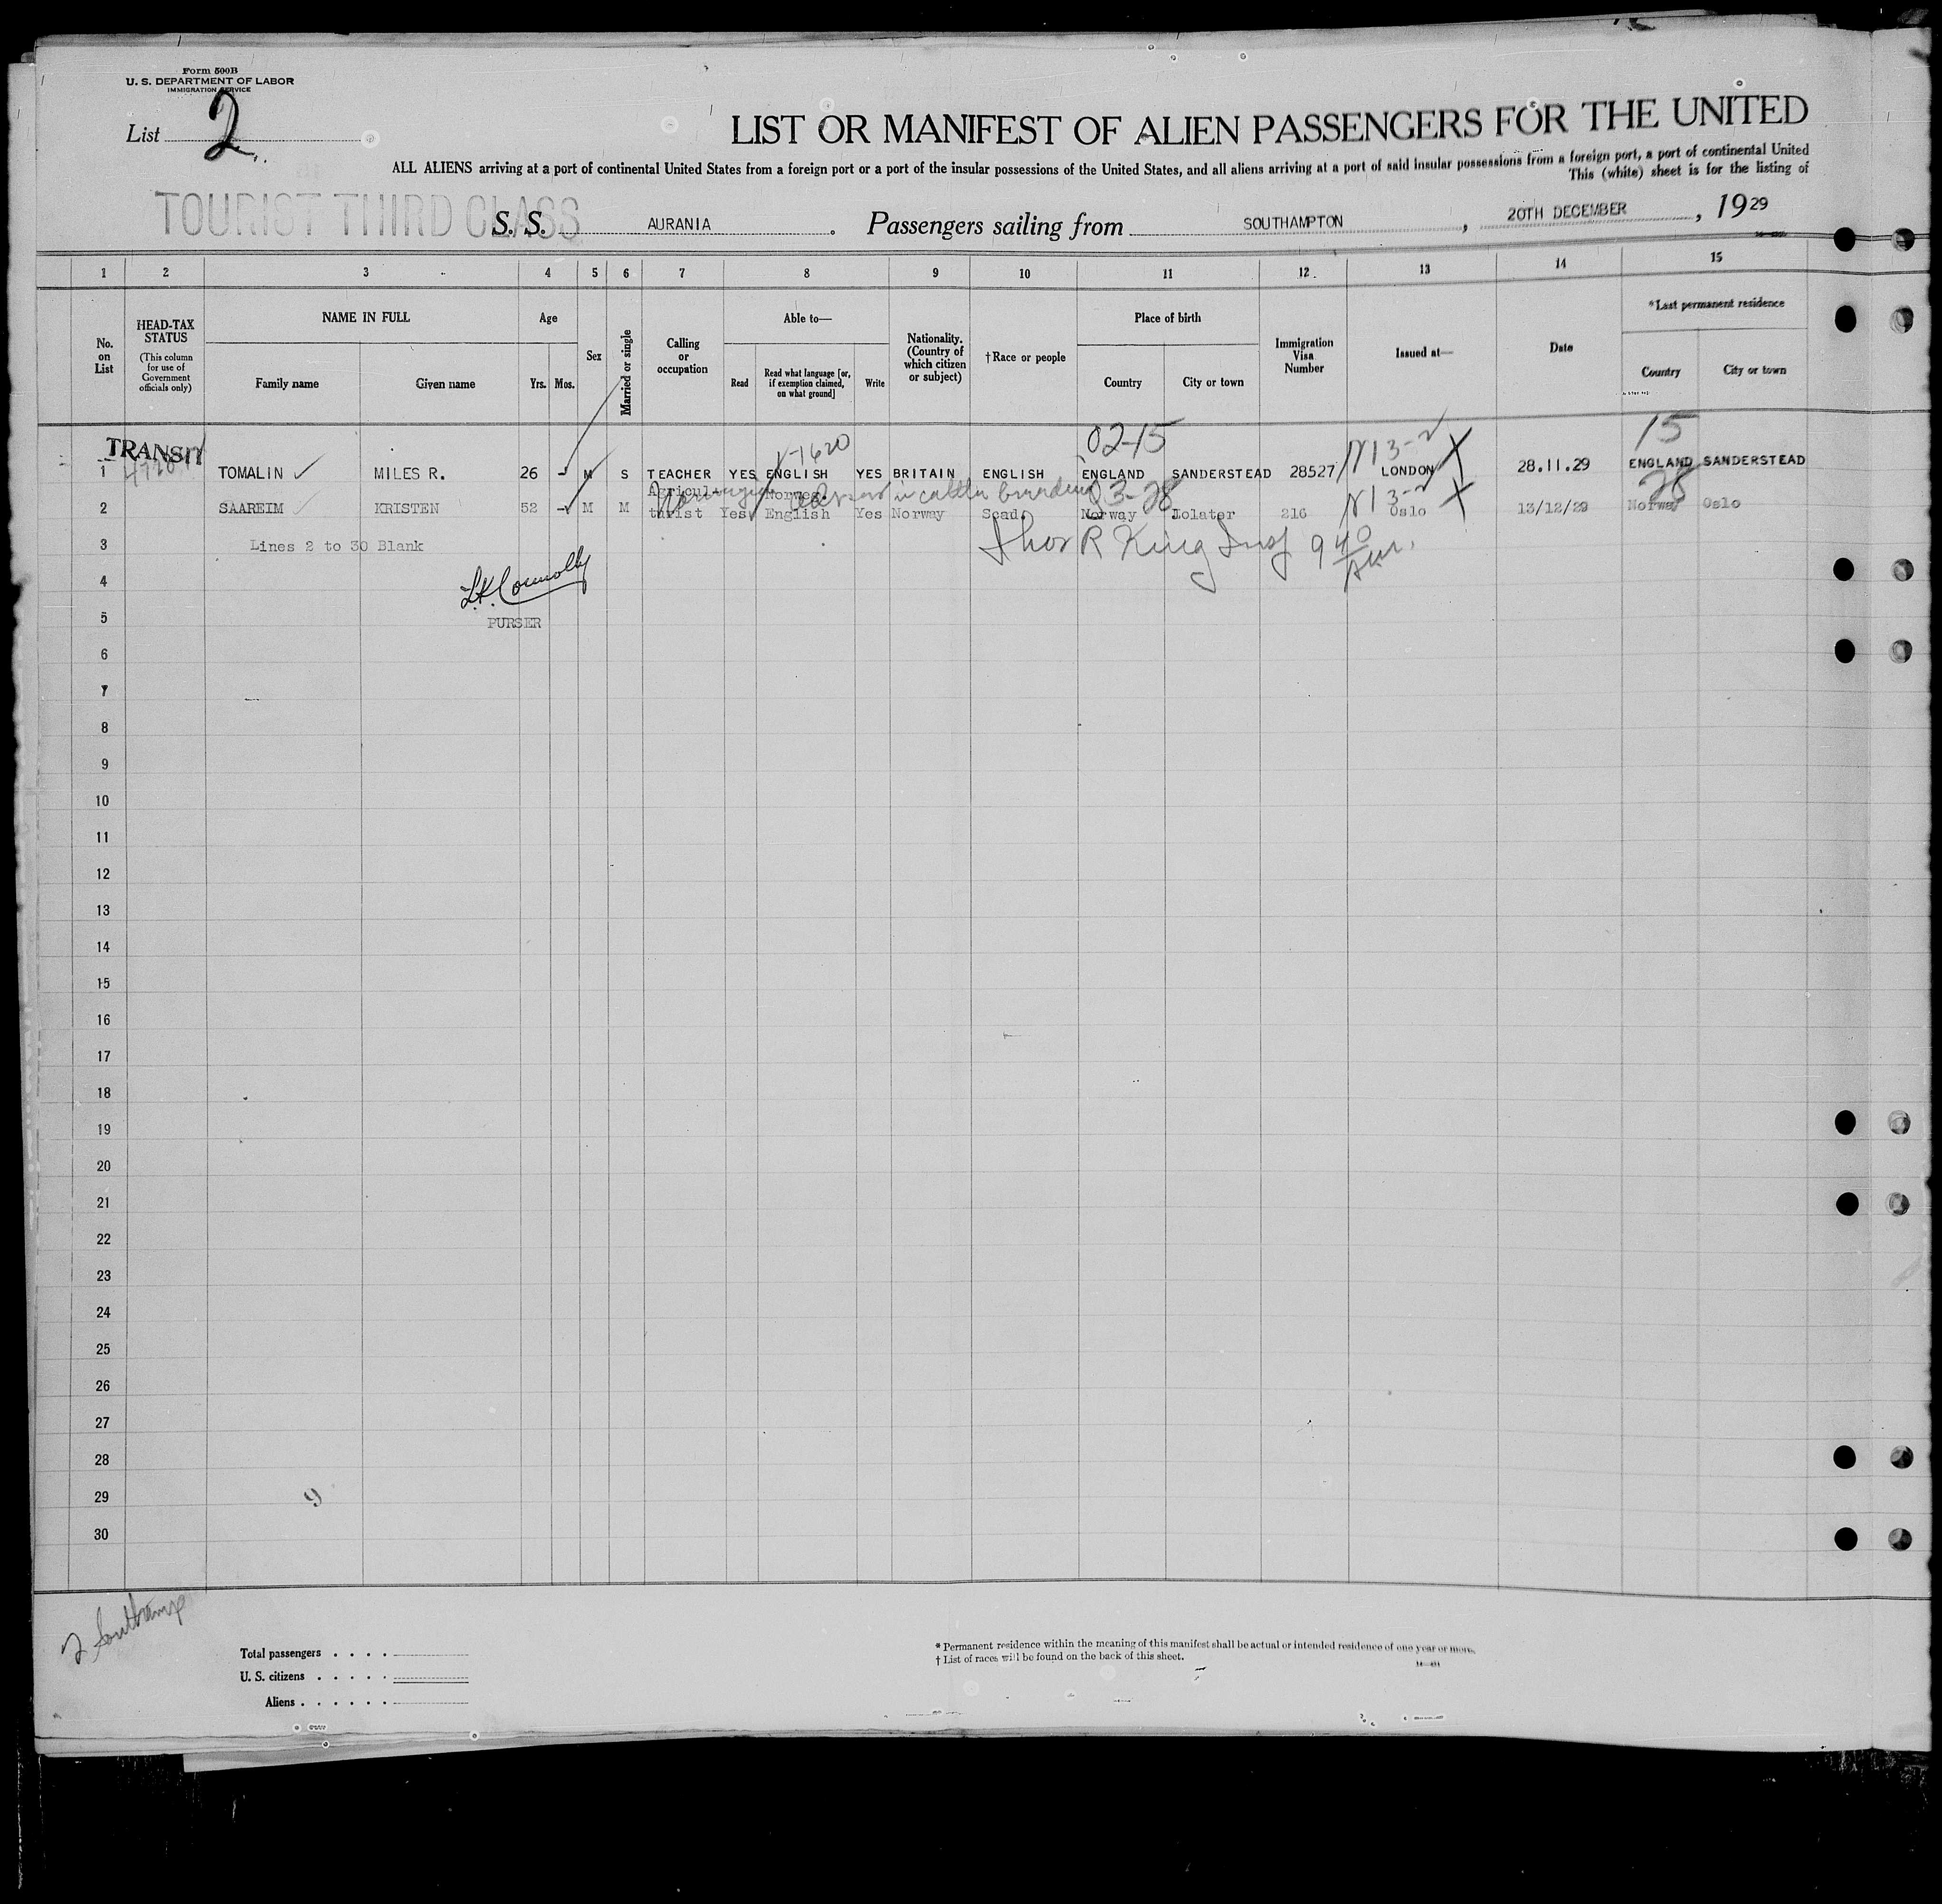 Form 500B
U. S. DEPARTMENT OF LABOR
IMMIGRATION SERVICE
List 2
LIST OR MANIFEST OF ALIEN PASSENGERS FOR THE UNITED
ALL ALIENS arriving at a port of continental United States from a foreign port or a port of the insular possessions of the United States, and all aliens arriving at a port of said insular possessions from a foreign port, a port of continental United
This (white) sheet is for the listing of
TOURIST THIRD CLASS
S. S. AURANIA. Passengers sailing from SOUTHAMPTON, 20TH DECEMBER, 1929
1 2 3 4 5 6 7 8 9 10 11 12 13 14 15
No. on List
HEAD-TAX STATUS
(This column for use of Government officials only)
NAME IN FULL
Family name
Given name
Age
Yrs. Mos.
Sex
Married or single
Calling or occupation
Able to—
Read
Read what language [or, if exemption claimed, on what ground]
Write
Nationality. (Country of which citizen or subject)
†Race or people
Place of birth
Country
City or town
Immigration Visa Number
Issued at—
Date
*Last permanent residence
Country
City or town
TRANSIT
02-15
15
1 TOMALIN MILES R. 26 - M S TEACHER YES ENGLISH YES BRITAIN ENGLISH ENGLAND SANDERSTEAD 28527 LONDON 28.11.29 ENGLAND SANDERSTEAD
Agricul- Norweg.
in cattle breeding
03-28
28
2 SAAREIM KRISTEN 52 - M M turist Yes English Yes Norway Scad. Norway 216 Oslo 13/12/29 Norway Oslo
3 Lines 2 to 30 Blank
Thos R King Insp 9 40 AM.
4
L.K. Connolly
5
PURSER
6
7
8
9
10
11
12
13
14
15
16
17
18
19
20
21
22
23
24
25
26
27
28
29
9
30
2 Southamp
Total passengers
U. S. citizens
Aliens
* Permanent residence within the meaning of this manifest shall be actual or intended residence of one year or more.
† List of races will be found on the back of this sheet.